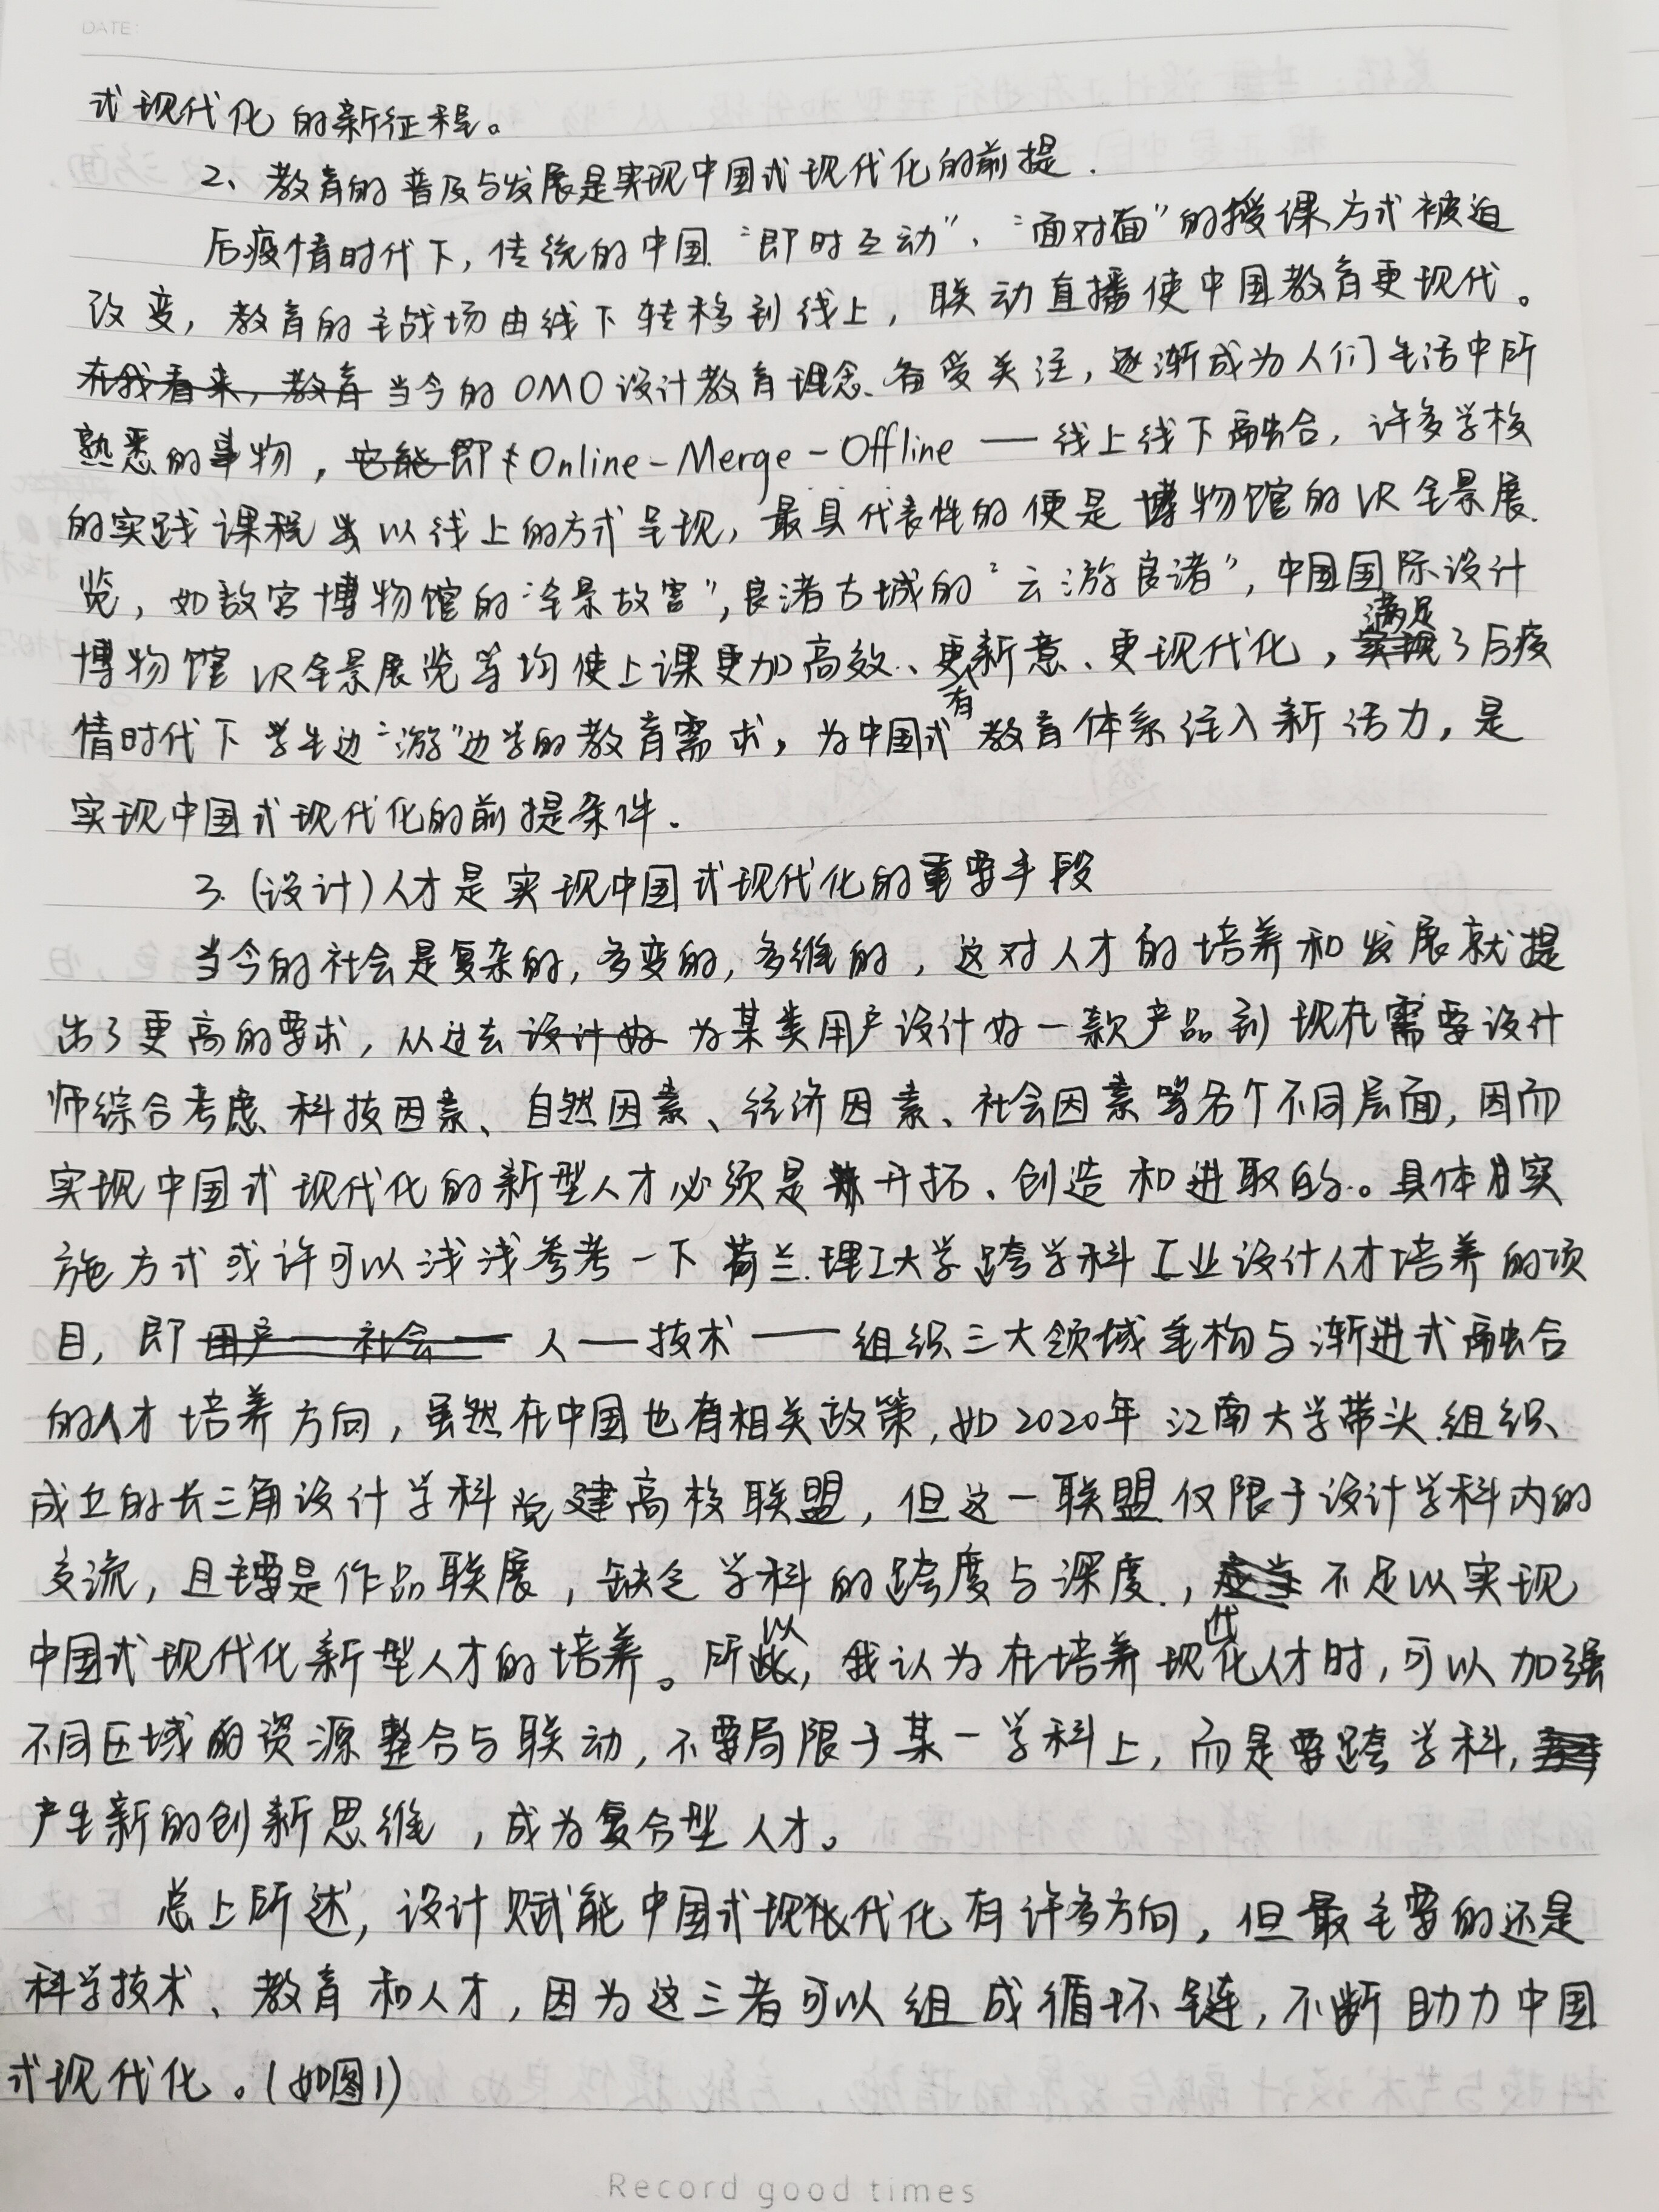 DATE:
式现代化的新征程。
2、教育的普及与发展是实现中国式现代化的前提.
后疫情时代下，传统的中国“即时互动”、“面对面”的授课方式被迫
改变，教育的主战场由线下转移到线上，联动直播使中国教育更现代。
在我看来，教育当今的OMO设计教育理念备受关注，逐渐成为人们生活中所
熟悉的事物，它能即Online-Merge-Offline——线上线下融合，许多学校
的实践课程以线上的方式呈现，最具代表性的便是博物馆的VR全景展
览，如故宫博物馆的“全景故宫”，良渚古城的“云游良渚”，中国国际设计
博物馆VR全景展览等均使上课更加高效、更有新意、更现代化，满足了后疫
情时代下学生边“游”边学的教育需求，为中国式教育体系注入新活力，是
实现中国式现代化的前提条件.
3.（设计）人才是实现中国式现代化的重要手段
当今的社会是复杂的，多变的，多维的，这对人才的培养和发展就提
出了更高的要求，从过去设计好为某类用户设计好一款产品到现在需要设计
师综合考虑科技因素、自然因素、经济因素、社会因素等各个不同层面，因而
实现中国式现代化的新型人才必须是开拓、创造和进取的。具体实
施方式或许可以浅浅参考一下荷兰理工大学跨学科工业设计人才培养的项
目，即用户——社会——人——技术——组织三大领域重构与渐进式融合
的人才培养方向，虽然在中国也有相关政策，如2020年江南大学带头组织、
成立的长三角设计学科党建高校联盟，但这一联盟仅限于设计学科内的
交流，且主要是作品联展，缺乏学科的跨度与深度，不足以实现
中国式现代化新型人才的培养。所以，我认为在培养现代化人才时，可以加强
不同区域的资源整合与联动，不要局限于某一学科上，而是要跨学科，
产生新的创新思维，成为复合型人才。
总上所述，设计赋能中国式现代化有许多方向，但最重要的还是
科学技术、教育和人才，因为这三者可以组成循环链，不断助力中国
式现代化。（如图1）
Record good times